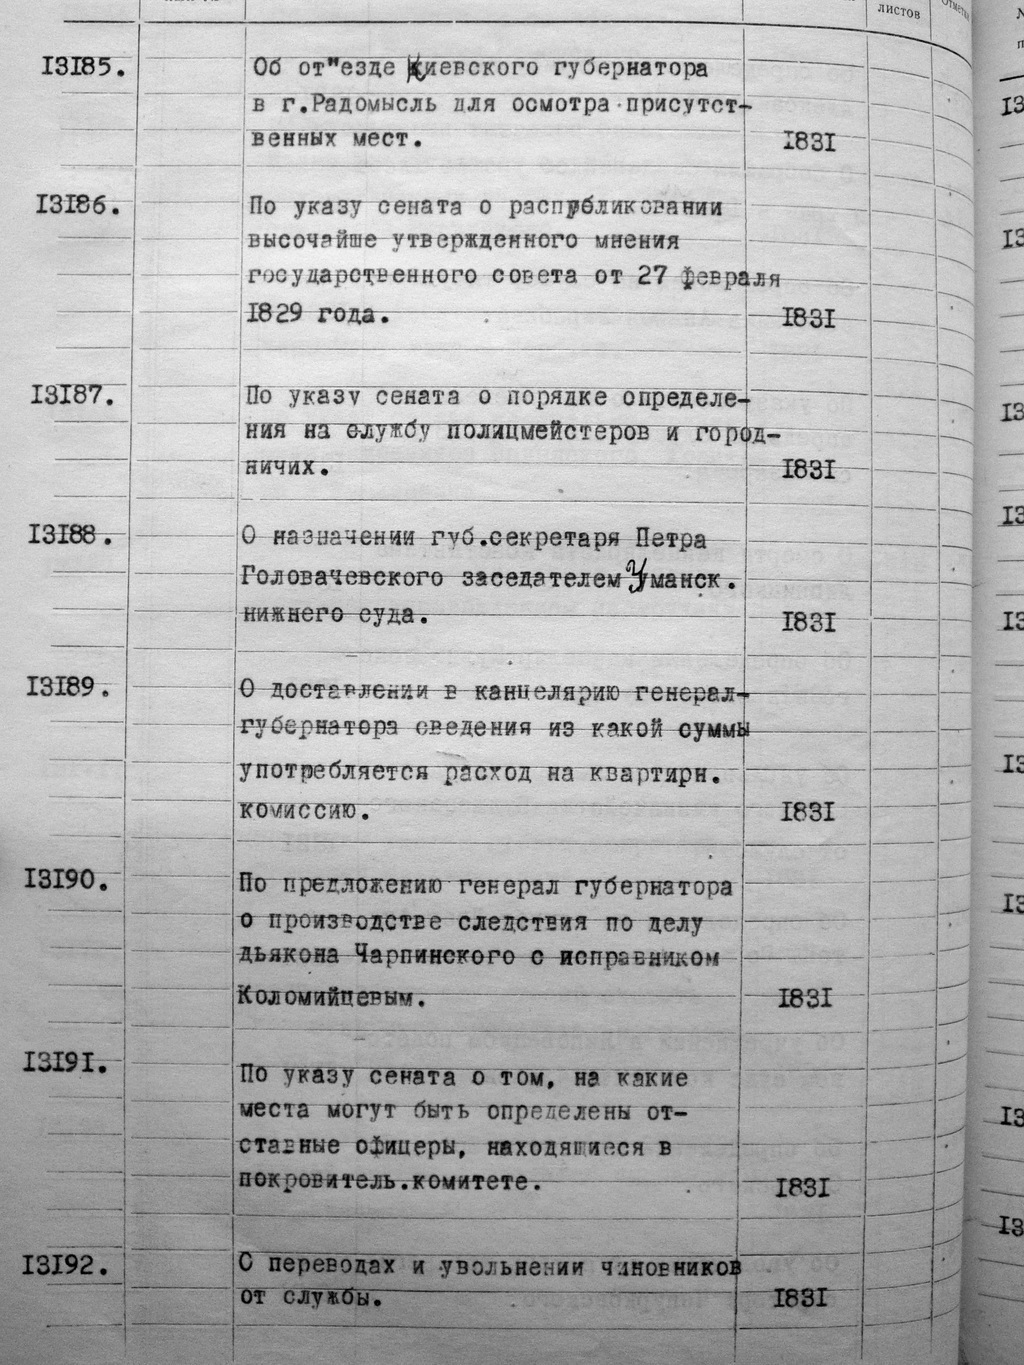 листов
13185.
Об от"езде Киевского губернатора
в г.Радомысль для осмотра присутст-
венных мест.
1831
13186.
По указу сената о распубликовании
высочайше утвержденного мнения
государственного совета от 27 февраля
1829 года.
1831
13187.
По указу сената о порядке определе-
ния на службу полицмейстеров и город-
ничих.
1831
13188.
О назначении губ.секретаря Петра
Головачевского заседателем Уманск.
нижнего суда.
1831
13189.
О доставлении в канцелярию генерал-
губернатора сведения из какой суммы
употребляется расход на квартирн.
комиссию.
1831
13190.
По предложению генерал губернатора
о производстве следствия по делу
дьякона Чарпинского с исправником
Коломийцевым.
1831
13191.
По указу сената о том, на какие
места могут быть определены от-
ставные офицеры, находящиеся в
покровитель.комитете.
1831
13192.
О переводах и увольнении чиновников
от службы.
1831